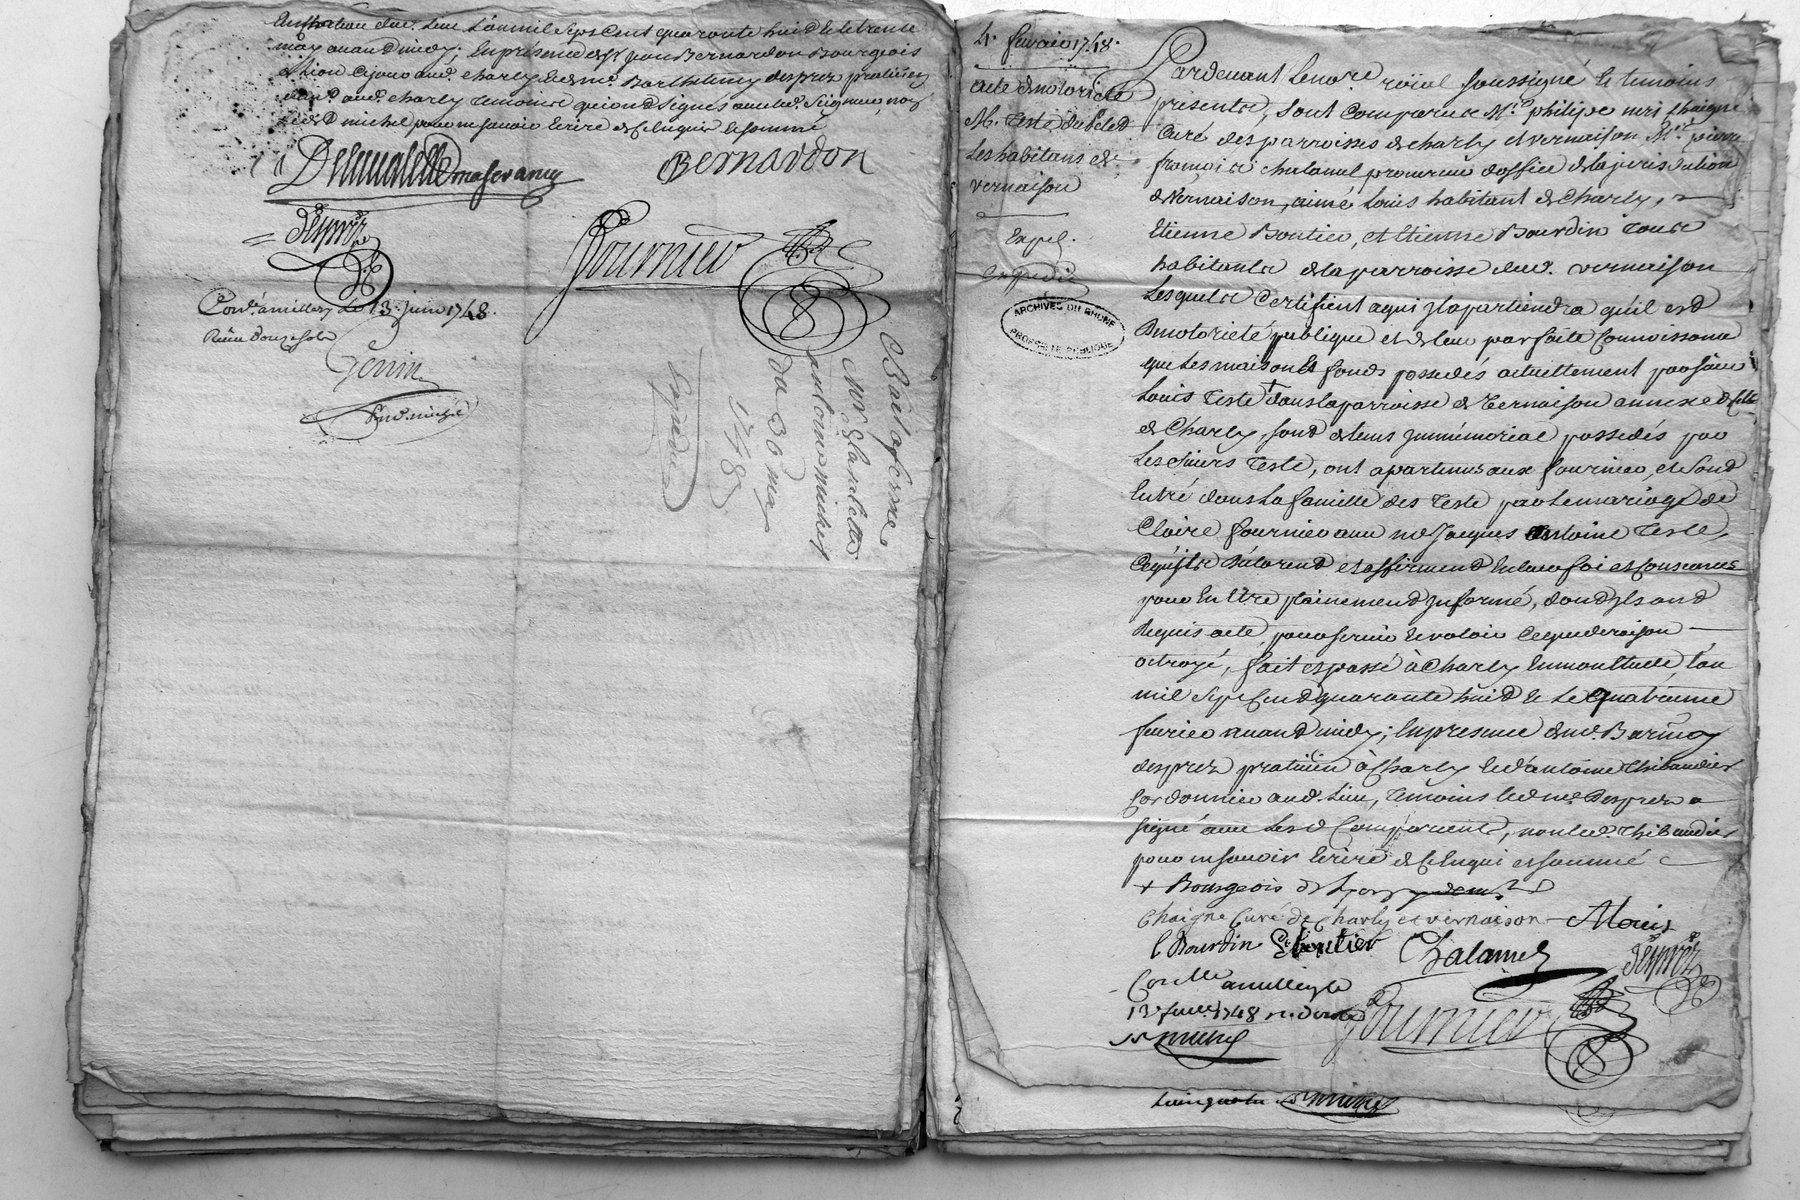 au château dud. Lieu L'an mil sept cent quarante huit & le trente
may avant midy; En présence de sr Jean Bernardon Bourgeois
de Lion Et de me Barthelemy desprez praticien
aud. charly Temoins qui ont signés avec led. Seigneur, non
led. michel pour ne savoir Ecrire de ce Enquis & sommé
maserancy
Bernardon
desprez
fournier
Con.lé à millery Le 13e Juin 1748.
Reçu douze sols
Genin
Bail a ferme
Mr
michel
du 30 may
1748
Expedié
4e fevrier 1748.
acte de notorieté
Mr. Teste dud.
Les habitans de
vernaison
Expel.
Expedié
ARCHIVES DU RHONE
PROPRIÉTÉ PUBLIQUE
Pardevant Le no.re roïial soussigné & temoins
presents, sont comparus Mre philipe neri chaigne
Curé des parroisses de charly et vernaison Mre pierre
françois chalamel procureur d'office de la jurisdiction
de Vernaison, aimé Louis habitant de Charly,
Etienne Boutier, et Etienne Bourdin tous
habitants de la parroisse dud. vernaison
Lesquels Certifient a qui Il apartiendra qu'il est
De notorieté publique et de leur parfaite Connoissance
que Les maison & fonds possedés actuellement par sieur
Louis Teste + dans la parroisse de Vernaison annexe de celle
de Charly, sont de tems jmmémorial possedés par
Les sieurs Teste, ont apartenus aux fournier, et sont
Entré dans La famille des Teste par Le mariage de
Claire fournier avec me Jacques Antoine Teste,
Ce qu'ils Déclarent et affirment En leur foi et Conscience
pour En Etre plainement jnformé, dont jls ont
Requis acte, pour servir & valoir Ce que de raison
octroyé, fait et passé à Charly En mon Etude L'an
mil sept Cent quarante huit & Le quatrieme
fevrier avant midy; En presence de me. Barmy
desprez praticien à Charly & d'antoine thibaudier
Cordonnier aud. Lieu, Temoins led. me Desprez a
signé avec Lesd Comparants, non led. thibaudier
pour ne savoir Ecrire de ce Enquis et sommé
+ Bourgeois de Lyon
Chaigne Curé de Charly et vernaison
A Louis
E Bourdin
E Boutier
Chalamel
desprez
Con.lé a millery le
13e fev. 1748 r. douze
fournier